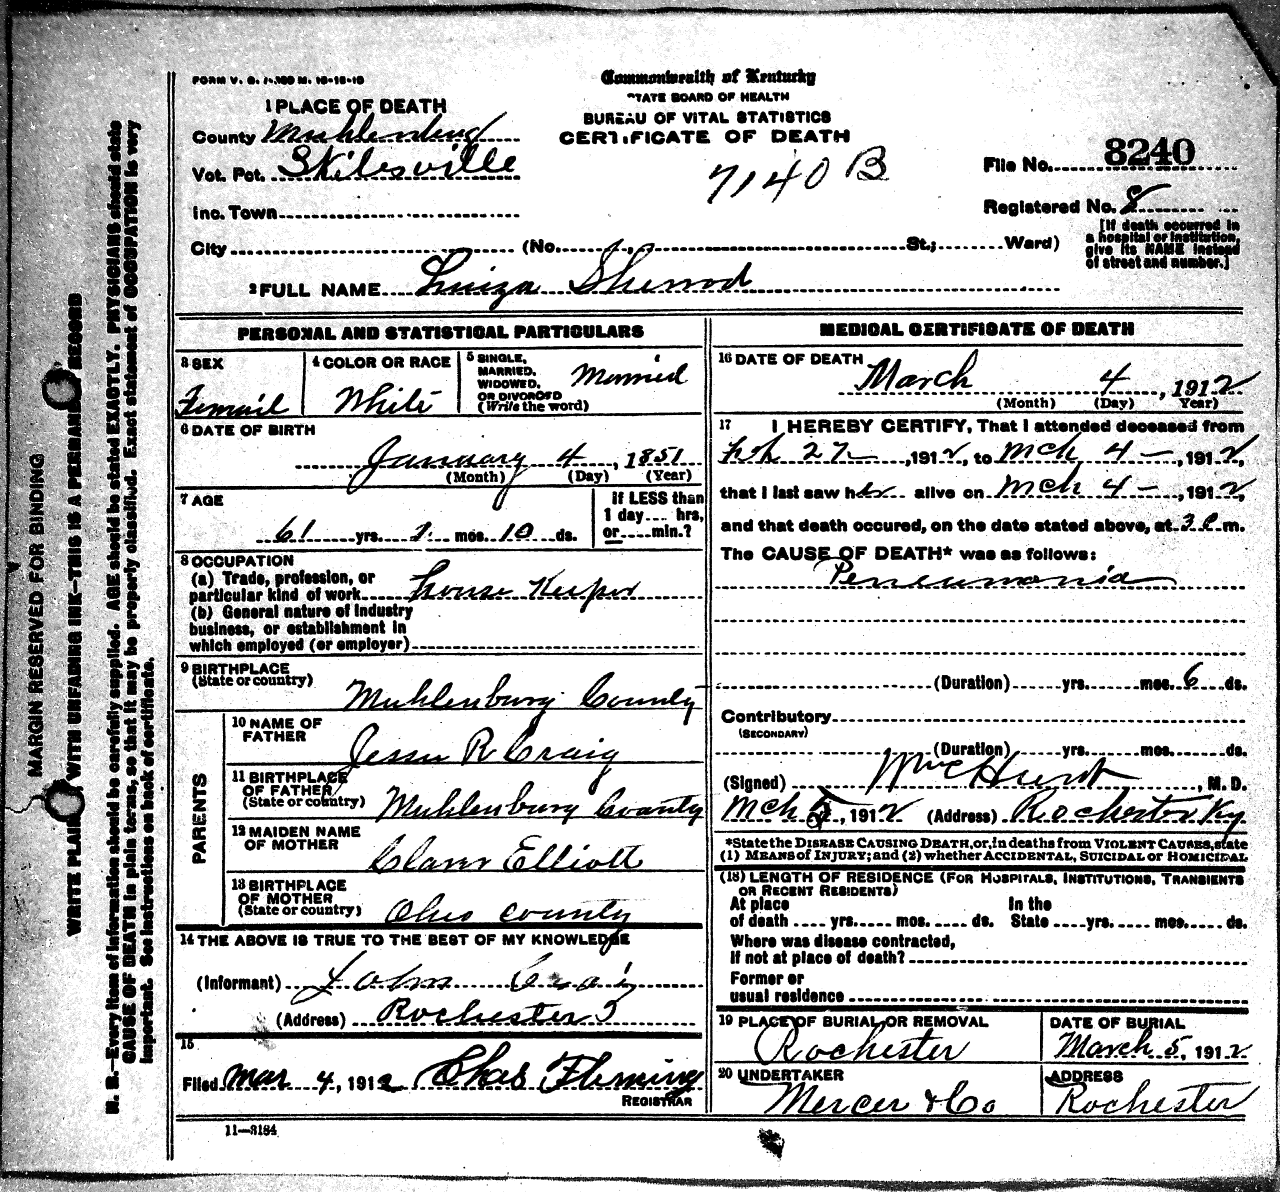 FORM V. S. 1-100 M. 10-15-10
Commonwealth of Kentucky
STATE BOARD OF HEALTH
BUREAU OF VITAL STATISTICS
CERTIFICATE OF DEATH
7140 B
File No. 8240
Registered No. 8
[If death occurred in
a hospital or institution,
give its NAME instead
of street and number.]
1 PLACE OF DEATH
County Muhlenburg
Vot. Pct. Skilesville
Inc. Town
City (No. , St.; Ward)
2 FULL NAME Luiza Sherrod
PERSONAL AND STATISTICAL PARTICULARS
3 SEX
Femail
4 COLOR OR RACE
White
5 SINGLE,
MARRIED,
WIDOWED,
OR DIVORCED
(Write the word)
Married
6 DATE OF BIRTH
January 4, 1851
(Month) (Day) (Year)
7 AGE
61 yrs. mos. 10 ds.
If LESS than
1 day.... hrs,
or....min.?
8 OCCUPATION
(a) Trade, profession, or
particular kind of work House Keeper
(b) General nature of industry
business, or establishment in
which employed (or employer)
9 BIRTHPLACE
(State or country)
Muhlenburg County
PARENTS
10 NAME OF
FATHER
Jesse R Craig
11 BIRTHPLACE
OF FATHER
(State or country)
Muhlenburg County
12 MAIDEN NAME
OF MOTHER
Elliott
13 BIRTHPLACE
OF MOTHER
(State or country)
Ohio County
14 THE ABOVE IS TRUE TO THE BEST OF MY KNOWLEDGE
(Informant) John Craig
(Address) Rochester
15
Filed Mar 4, 1912 Chas Fleming
REGISTRAR
11—3184
MEDICAL CERTIFICATE OF DEATH
16 DATE OF DEATH
March 4, 1912
(Month) (Day) Year)
17 I HEREBY CERTIFY, That I attended deceased from
27, 1912, to Mch 4, 1912,
that I last saw her alive on Mch 4, 1912,
and that death occured, on the date stated above, at m.
The CAUSE OF DEATH* was as follows:
Peneumonia
(Duration) yrs. mos. 6 ds.
Contributory
(SECONDARY)
(Duration) yrs. mos. ds.
(Signed) Hunt, M. D.
Mch 5, 1912 (Address) Rochester Ky
*State the DISEASE CAUSING DEATH, or, in deaths from VIOLENT CAUSES, state
(1) MEANS of INJURY; and (2) whether ACCIDENTAL, SUICIDAL or HOMICIDAL
(18) LENGTH OF RESIDENCE (FOR HOSPITALS, INSTITUTIONS, TRANSIENTS
OR RECENT RESIDENTS)
At place In the
of death .... yrs.....mos. ....ds. State ....yrs.....mos.....ds.
Where was disease contracted,
If not at place of death?
Former or
usual residence
19 PLACE OF BURIAL OR REMOVAL
Rochester
DATE OF BURIAL
March 5, 1912
20 UNDERTAKER
Mercer & Co
ADDRESS
Rochester
MARGIN RESERVED FOR BINDING
WRITE PLAINLY, WITH UNFADING INK—THIS IS A PERMANENT RECORD
N. B.—Every item of information should be carefully supplied. AGE should be stated EXACTLY. PHYSICIANS should state
CAUSE OF DEATH in plain terms, so that it may be properly classified. Exact statement of OCCUPATION is very
important. See instructions on back of certificate.